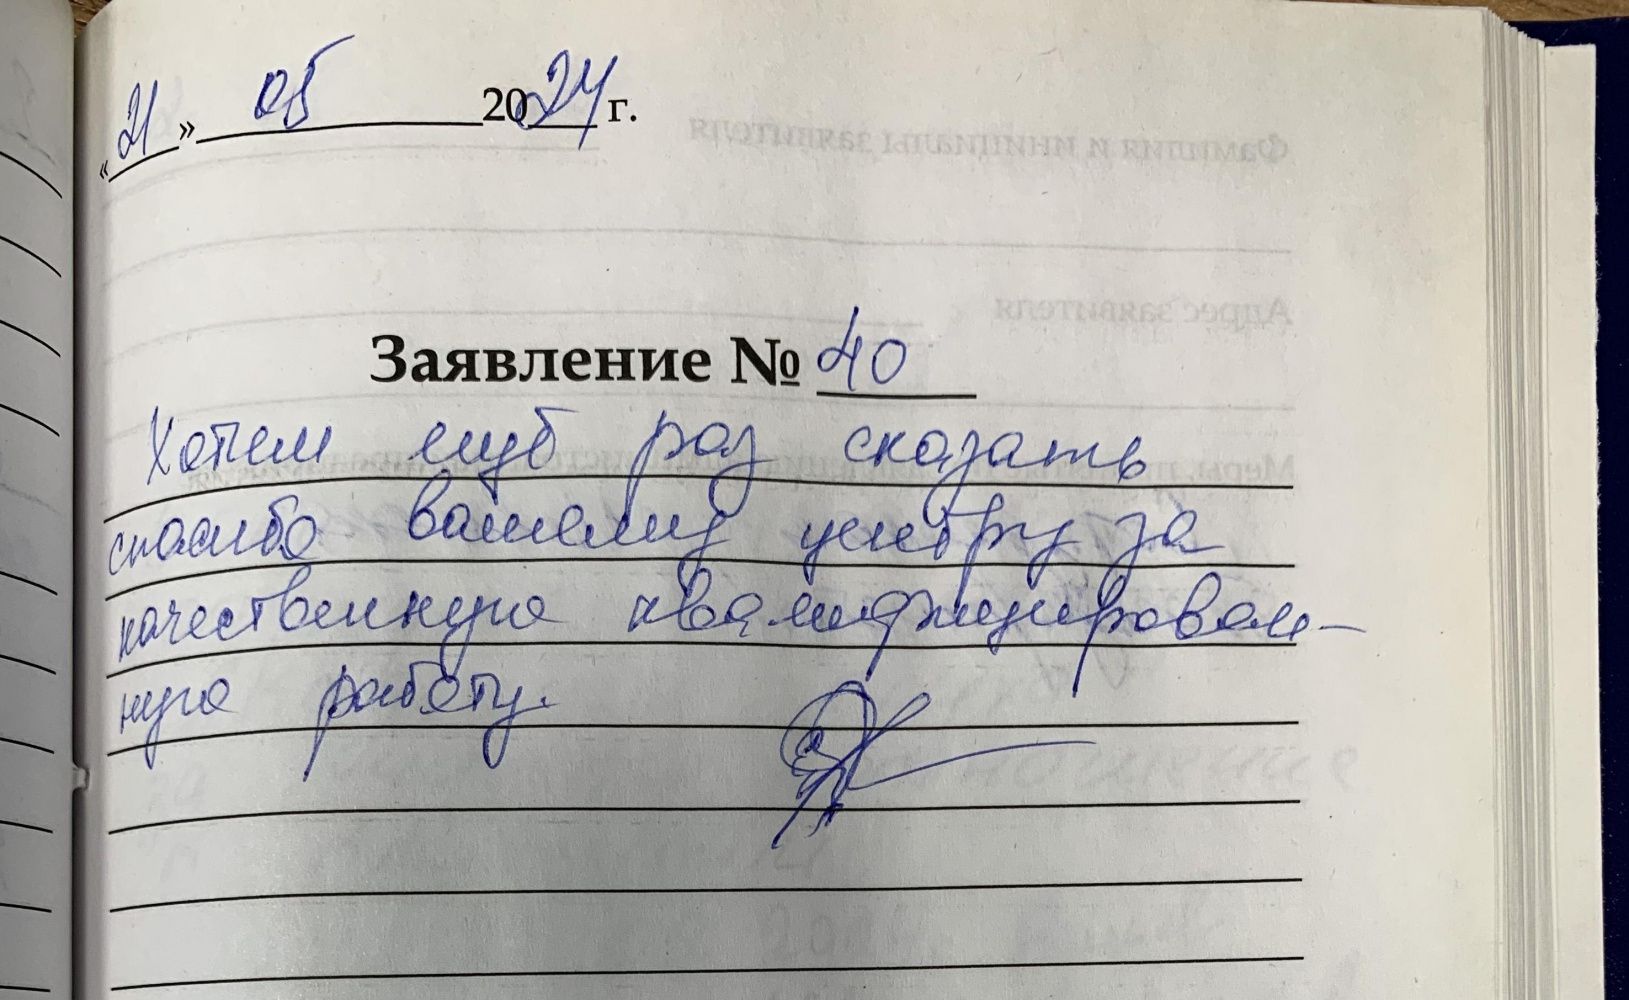 «21» 05 2024 г.
Заявление № 40
Хотим раз сказать
спасибо вашему центру за
качественную квалифицирован-
ную работу.